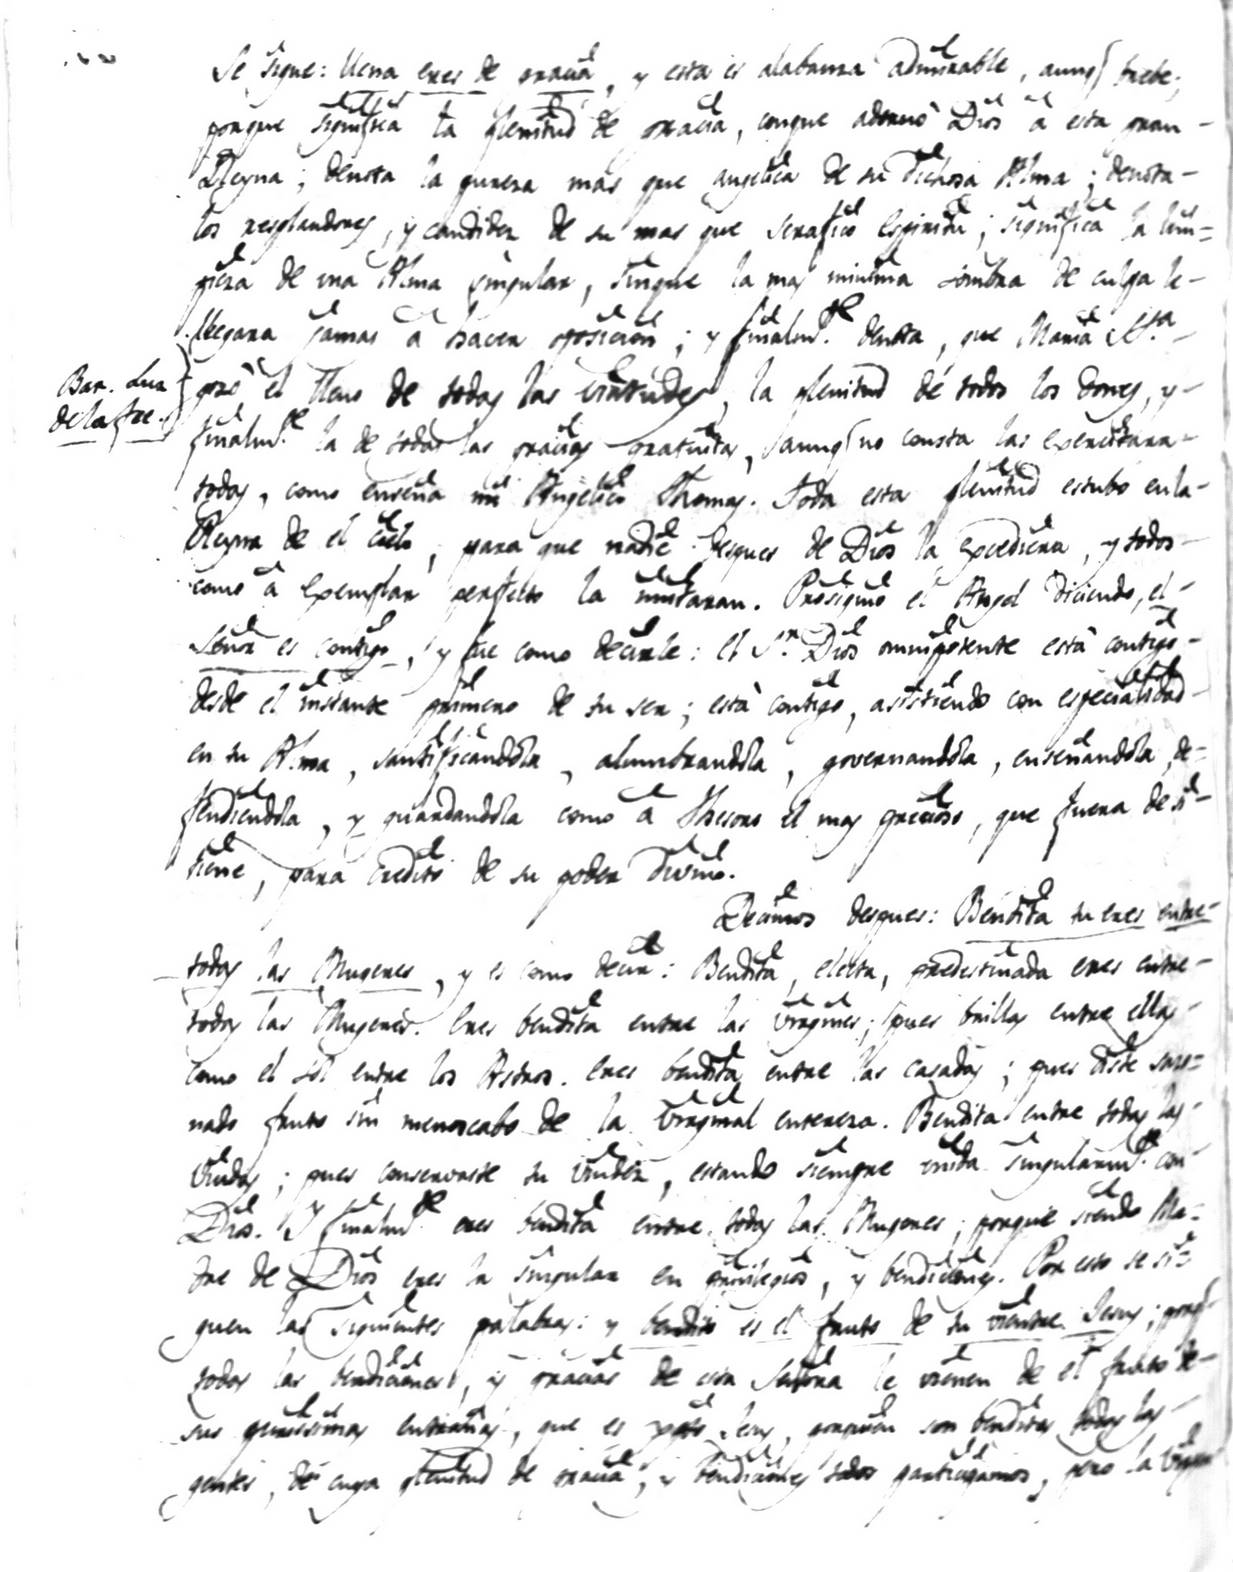 Se sigue: llena eres de gracia, y esta es alabanza admirable, aunq brebe;
porque significa la plenitud de gracia, conque adornò Dios à esta gran-
Reyna; denota la pureza mas que angelica de su dichosa Alma; denota-
los resplandores, y candidez de su mas que serafico Espiritu; significa la lim=
pieza de una Alma singular, sinque la mas minima sombra de culpa le-
llegara jamas à hacer oposicion; y finalmte. denota, que Maria SSa.
gozò el lleno de todas las virtudes, la plenitud de todos los dones, y-
Bar. Luz
de la fee.
finalmte. la de todas las gracias gratuitas, aunq no consta las exercitara-
todas, como enseña mi Angelico Thomas. Toda esta plenitud estubo en la-
Reyna de el Cielo, para que nadie despues de Dios la excediera, y todos-
como à exemplar perfecto la imitaran. Prosiguiò el Angel diciendo, el-
Señor es contigo, y fue como decirle: el Sr. Dios omnipotente està contigo-
desde el instante primero de tu ser; està contigo, asistiendo con especialidad-
en tu Alma, santificandola, alumbrandola, governandola, enseñandola, de=
fendiendola, y guardandola como à Thesoro el mas precioso, que fuera de sì-
tiene, para credito de su poder divino.
Decimos despues: Bendita tu eres entre-
todas las Mugeres, y es como decir: Bendita, electa, predestinada eres entre-
todas las Mugeres. Eres bendita entre las Virgines; pues brillas entre ellas-
como el Sol entre los Astros. Eres bendita entre las casadas; pues diste sazo=
nado fruto sin menoscabo de la Virginal entereza. Bendita entre todas las-
Viudas; pues conservaste tu viudez, estando siempre unida singularmte. con
Dios. Y finalmte. eres bendita entre todas las Mugeres; porque siendo Ma=
dre de Dios eres la singular en privilegios, y bendiciones. Por esto se si=
guen las siguientes palabras: y bendito es el fruto de tu vientre Jesus; porq
todas las bendiciones, y gracias de esta Señora le vienen de el fruto de-
sus purissimas entrañas, que es Xpto Jesus, por quien son benditas todas las-
gentes, de cuya plenitud de gracia, y bendiciones todos participamos, pero la Virgen